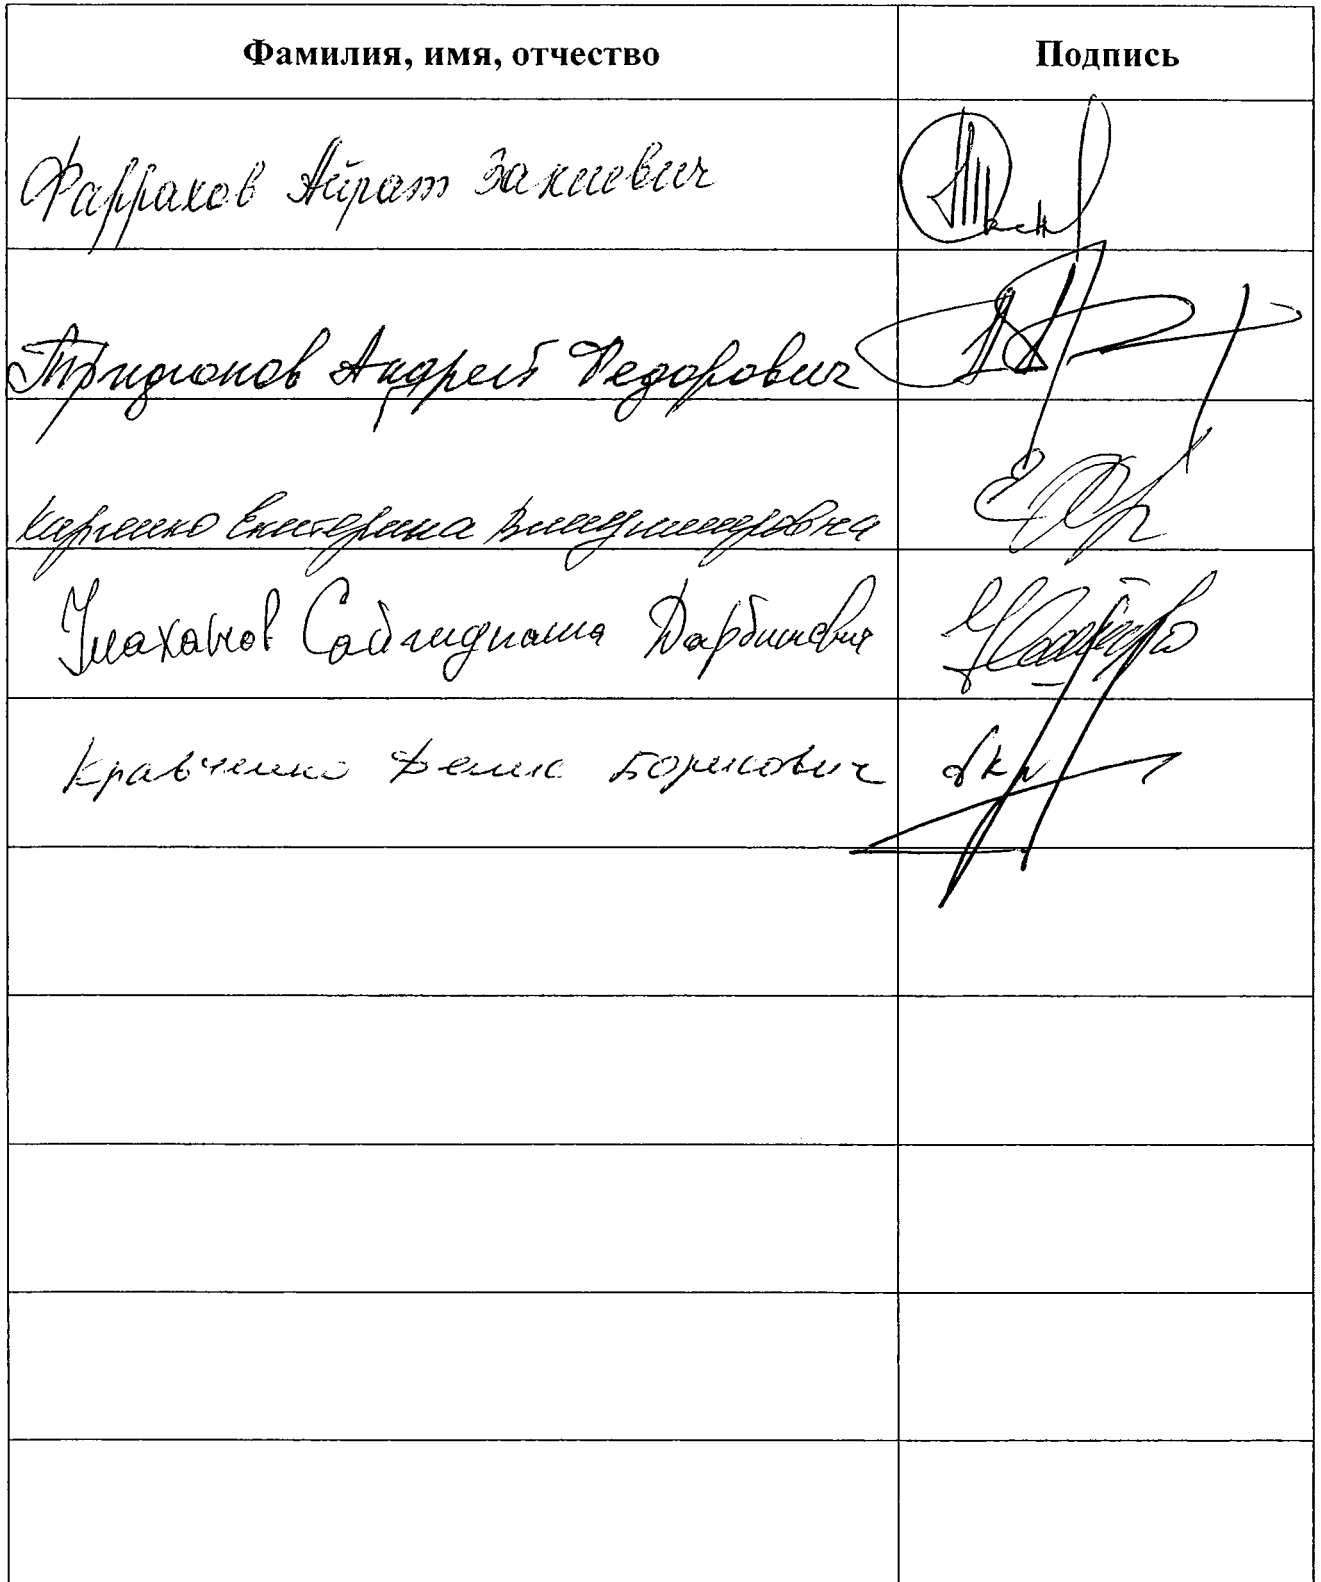 Фамилия, имя, отчество Подпись
Фаррахов Айрат Закиевич
Трифонов Андрей Федорович
Харченко Екатерина Владимировна
Умаханов Саймидпаша Дарбишевич
Кравченко Денис Борисович